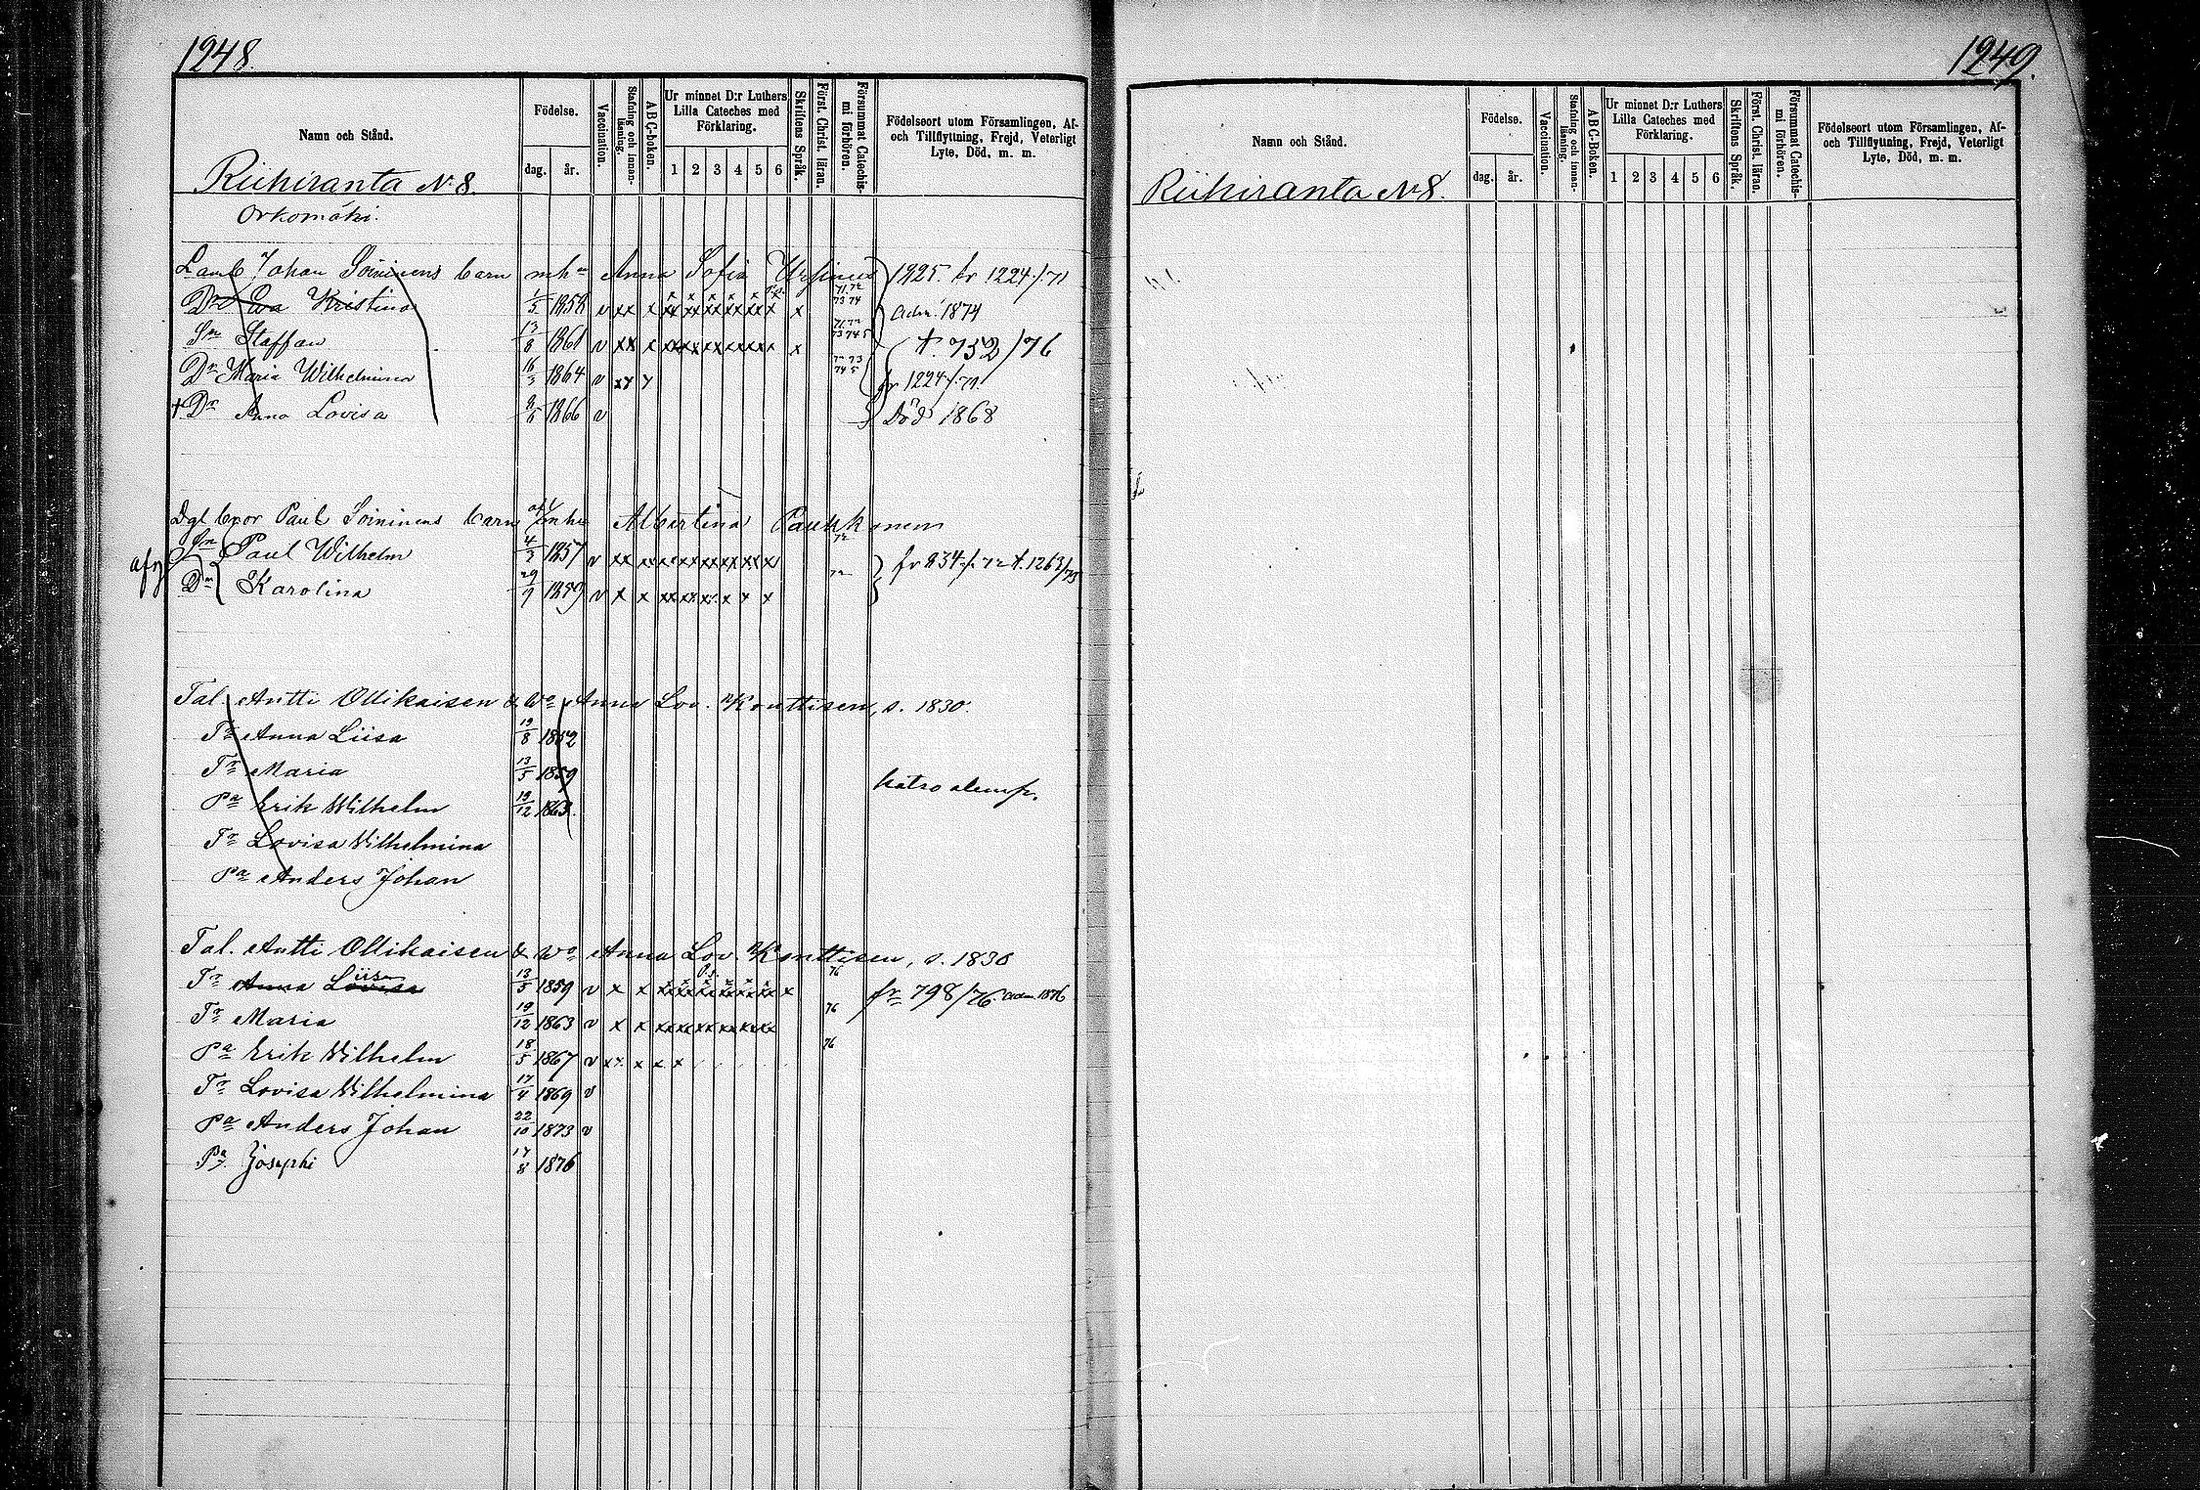 1248.
Namn och Stånd.
Födelse.
dag. år.
Vaccination.
Stafning och innanläsning.
ABC-boken.
Ur minnet D:r Luthers Lilla Cateches med Förklaring.
1 2 3 4 5 6
Skriftens Språk.
Först. Christ. läran.
Försummat Catechismi förhören.
Födelseort utom Församlingen, Af- och Tillflyttning, Frejd, Veterligt Lyte, Död, m. m.
Riihiranta N:8.
Orkomäki.
Johan Soininens barn mhu Anna Sofia 1925. fr 1224/71
Dr Eva Kristina 1/5 1858 v xx x x 71.72 73 74 adm. 1874
Sn Staffan 13/8 1861 v xx x x t. 732/76
Dr Maria Wilhelmina 16/3 1864 v fr 1224/71
† Dr Anna Lovisa 1866 v Död 1868
Paul Soininens barn mhu Albertina Paukkonen 72
Sn Paul Wilhelm 4/3 1857 v xx fr 934/72 t. 1263/73
Dr Karolina 29/9 1859 v x x xx x x x 72
Tal. Antti Ollikaisen & Wo Anna Lov. Konttisen, s. 1830.
Tr Anna Liisa 19/8 1852
Tr Maria 13/5 1859
katso alemp.
Pa Erik Wilhelm 19/12 1863.
Tr Lovisa Wilhelmina
Pa Anders Johan
Tal. Antti Ollikaisen & Wo Anna Lov. Konttisen, s. 1830
Tr Anna Lovisa Liisa 13/5 1859 v x x x 76 fr 798/76. adm. 1876
Tr Maria 19/12 1863 v x x 76
Pa Erik Wilhelm 18/5 1867 v xx x x x 76
Tr Lovisa Wilhelmina 17/4 1869 v
Pa Anders Johan 22/10 1873 v
Pa Josephi 17/8 1876
1249.
Namn och Stånd.
Födelse.
dag. år.
Vaccination.
Stafning och innanläsning.
ABC-Boken.
Ur minnet D:r Luthers Lilla Cateches med Förklaring.
1 2 3 4 5 6
Skriftens Språk.
Först. Christ. läran.
Försummat Catechismi förhören.
Födelseort utom Församlingen, Af- och Tillflyttning, Frejd, Veterligt Lyte, Död, m. m.
Riihiranta N:8.